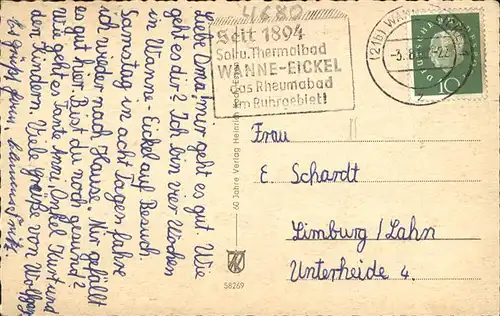 4680
Seit 1894
Sol- u. Thermalbad
WANNE-EICKEL
das Rheumabad
im Ruhrgebiet!
(21b) WANNE-
-3.8.
DEUTSCHE
10
Liebe Oma! Mir geht es gut. Wie
geht es dir? Ich bin vier Wochen
in Wanne-Eickel auf Besuch.
Samstag in acht Tagen fahre
ich wieder nach Hause. Mir gefällt
es gut hier. Bist du noch gesund?
Wie geht es Tante Anni, Onkel Kurt und
den Kindern. Viele Grüße von Wolfgang
Es grüßt
60 Jahre Verlag Heinrich
58269
Frau
E Schardt
Limburg / Lahn
Unterheide 4.